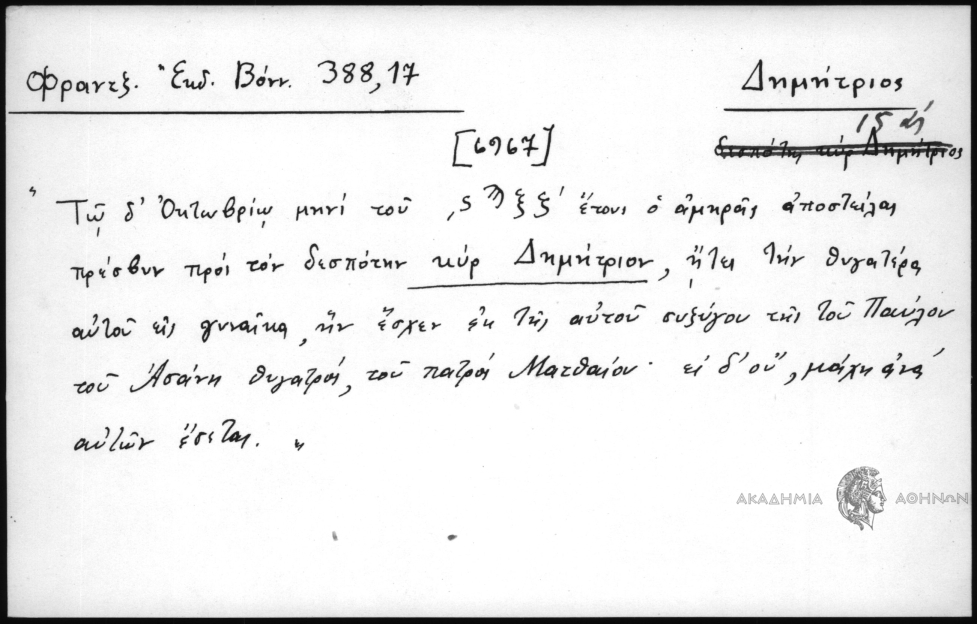 Φραντζ. Ἐκδ. Βόνν. 388,17
Δημήτριος
15 αἰ
[6967]
δεσπότης κὺρ Δημήτριος
" Τῷ δ' Ὀκτωβρίῳ μηνὶ τοῦ ,ς ϡ ξ ζ' ἔτους ὁ ἀμηρᾶς ἀποστείλας
πρέσβυν πρὸς τὸν δεσπότην κὺρ Δημήτριον, ᾔτει τὴν θυγατέρα
αὐτοῦ εἰς γυναῖκα, ἣν ἔσχεν ἐκ τῆς αὐτοῦ συζύγου τῆς τοῦ Παύλου
τοῦ Ἀσάνη θυγατρός, τοῦ πατρὸς Ματθαίου· εἰ δ' οὔ, μάχη ἀνὰ
αὐτῶν ἔσεται. "
ΑΚΑΔΗΜΙΑ ΑΘΗΝΩΝ